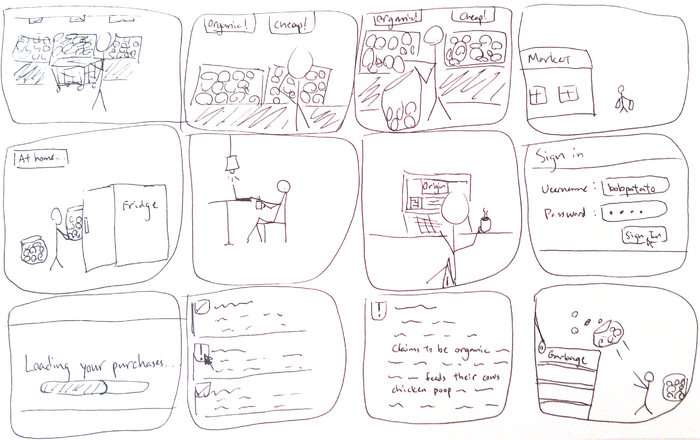 Organic!
Cheap!
Organic!
Cheap!
Market
At home...
Fridge
Origin
Sign in
Username: bobpotato
Password: ••••
Sign In
Loading your purchases...
!
!
Claims to be organic
feeds their cows
chicken poop
Garbage